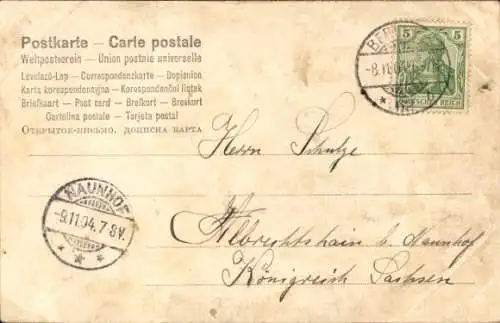 Postkarte – Carte postale
Weltpostverein – Union postale universelle
Levelező-Lap – Correspondenzkarte – Dopisnice
Karta korespondencyjna – Korespondenční lístek
Briefkaart – Post card – Brefkort – Brevkort
Cartolina postale – Tarjeta postal
Открытое письмо. дописна карта
5 5
DEUTSCHES REICH
Herrn Schulze
NAUNHOF
-9.11.04.7-8V.
Albrechtshain bei Naunhof
Königreich Sachsen